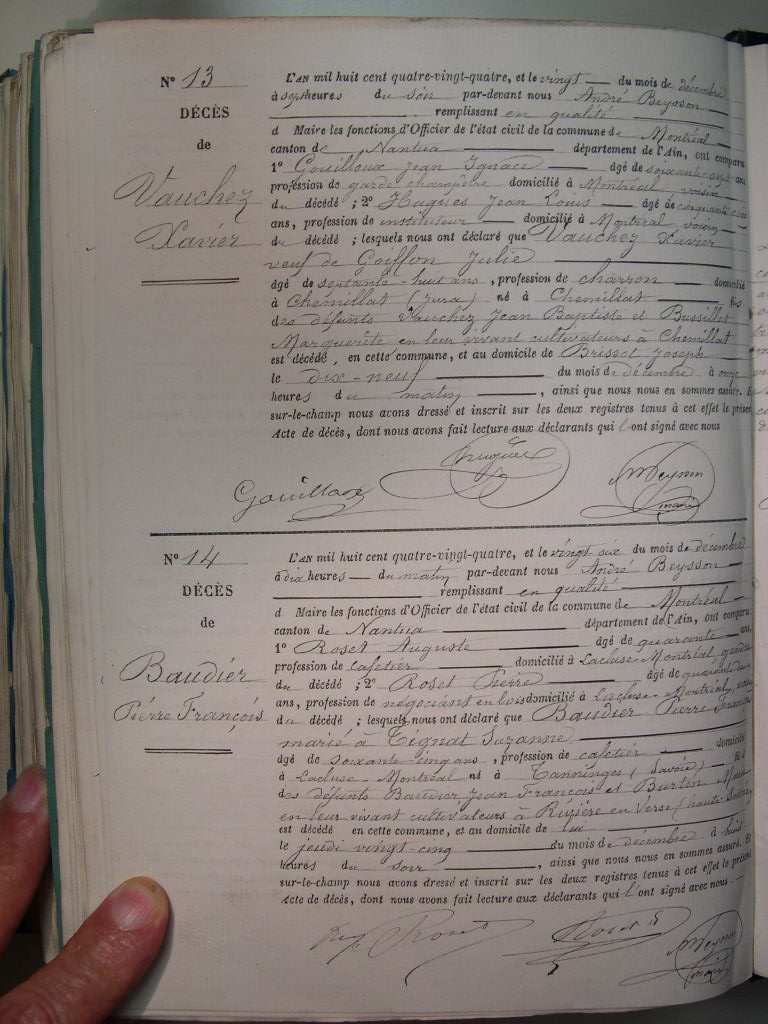 N° 13
DÉCÈS
de
Vauchez
Xavier
L'AN mil huit cent quatre-vingt-quatre, et le vingt du mois de décembre
à sept heures du soir par-devant nous André Beysson
remplissant en qualité
d Maire les fonctions d'Officier de l'état civil de la commune de Montréal
canton de Nantua département de l'Ain, ont comparu
1° Gouilloux Jean Ignace âgé de soixante ans
profession de garde champêtre domicilié à Montréal voisin
du décédé ; 2° Hugues Jean Louis âgé de cinquante
ans, profession de instituteur domicilié à Montréal voisin
du décédé ; lesquels nous ont déclaré que Vauchez Xavier
veuf de Goiffon Julie
âgé de septante-huit ans, profession de charron domicilié
à Chémillat (Jura) né à Chemillat fils
des défunts Vauchez Jean Baptiste et Bussillet
Marguerite en leur vivant cultivateurs à Chemillat
est décédé, en cette commune, et au domicile de Brisset Joseph
le dix-neuf du mois de décembre à onze
heures du matin, ainsi que nous nous en sommes assuré. E
sur-le-champ nous avons dressé et inscrit sur les deux registres tenus à cet effet le présen
Acte de décès, dont nous avons fait lecture aux déclarants qui l'ont signé avec nous
Gouilloux
Hugues
Beysson
maire
N° 14
DÉCÈS
de
Baudier
Pierre François
L'AN mil huit cent quatre-vingt-quatre, et le vingt six du mois de décembre
à dix heures du matin par-devant nous André Beysson
remplissant en qualité
d Maire les fonctions d'Officier de l'état civil de la commune de Montréal
canton de Nantua département de l'Ain, ont comparu
1° Roset Auguste âgé de quarante ans,
profession de cafetier domicilié à Lacluse-Montréal gendre
du décédé ; 2° Roset Pierre âgé de quarante deux
ans, profession de négociant en bois domicilié à Lacluse-Montréal, voisin
du décédé ; lesquels nous ont déclaré que Baudier Pierre François
marié à Tignat Suzanne
âgé de soixante-cinq ans, profession de cafetier domicilié
à Lacluse-Montréal né à Tanninges (Savoie) fils
des défunts Baudier Jean François et Burtin
en leur vivant cultivateurs à Rivière en Verse (haute Savoie)
est décédé en cette commune, et au domicile de lui
le jeudi vingt-cinq du mois de décembre à huit
heures du soir, ainsi que nous nous en sommes assuré. Et
sur-le-champ nous avons dressé et inscrit sur les deux registres tenus à cet effet le présent
Acte de décès, dont nous avons fait lecture aux déclarants qui l'ont signé avec nous.
Roset
Roset
Beysson
maire